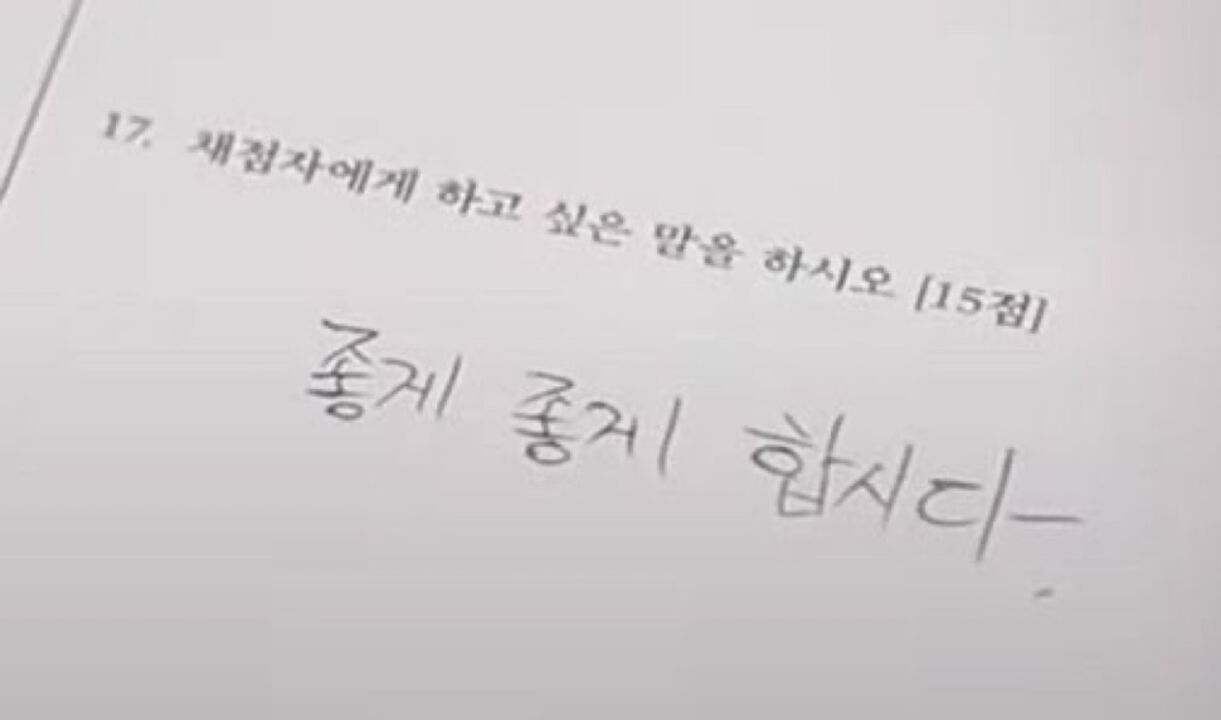 17. 채점자에게 하고 싶은 말을 하시오 [15점]
좋게 좋게 합시다.